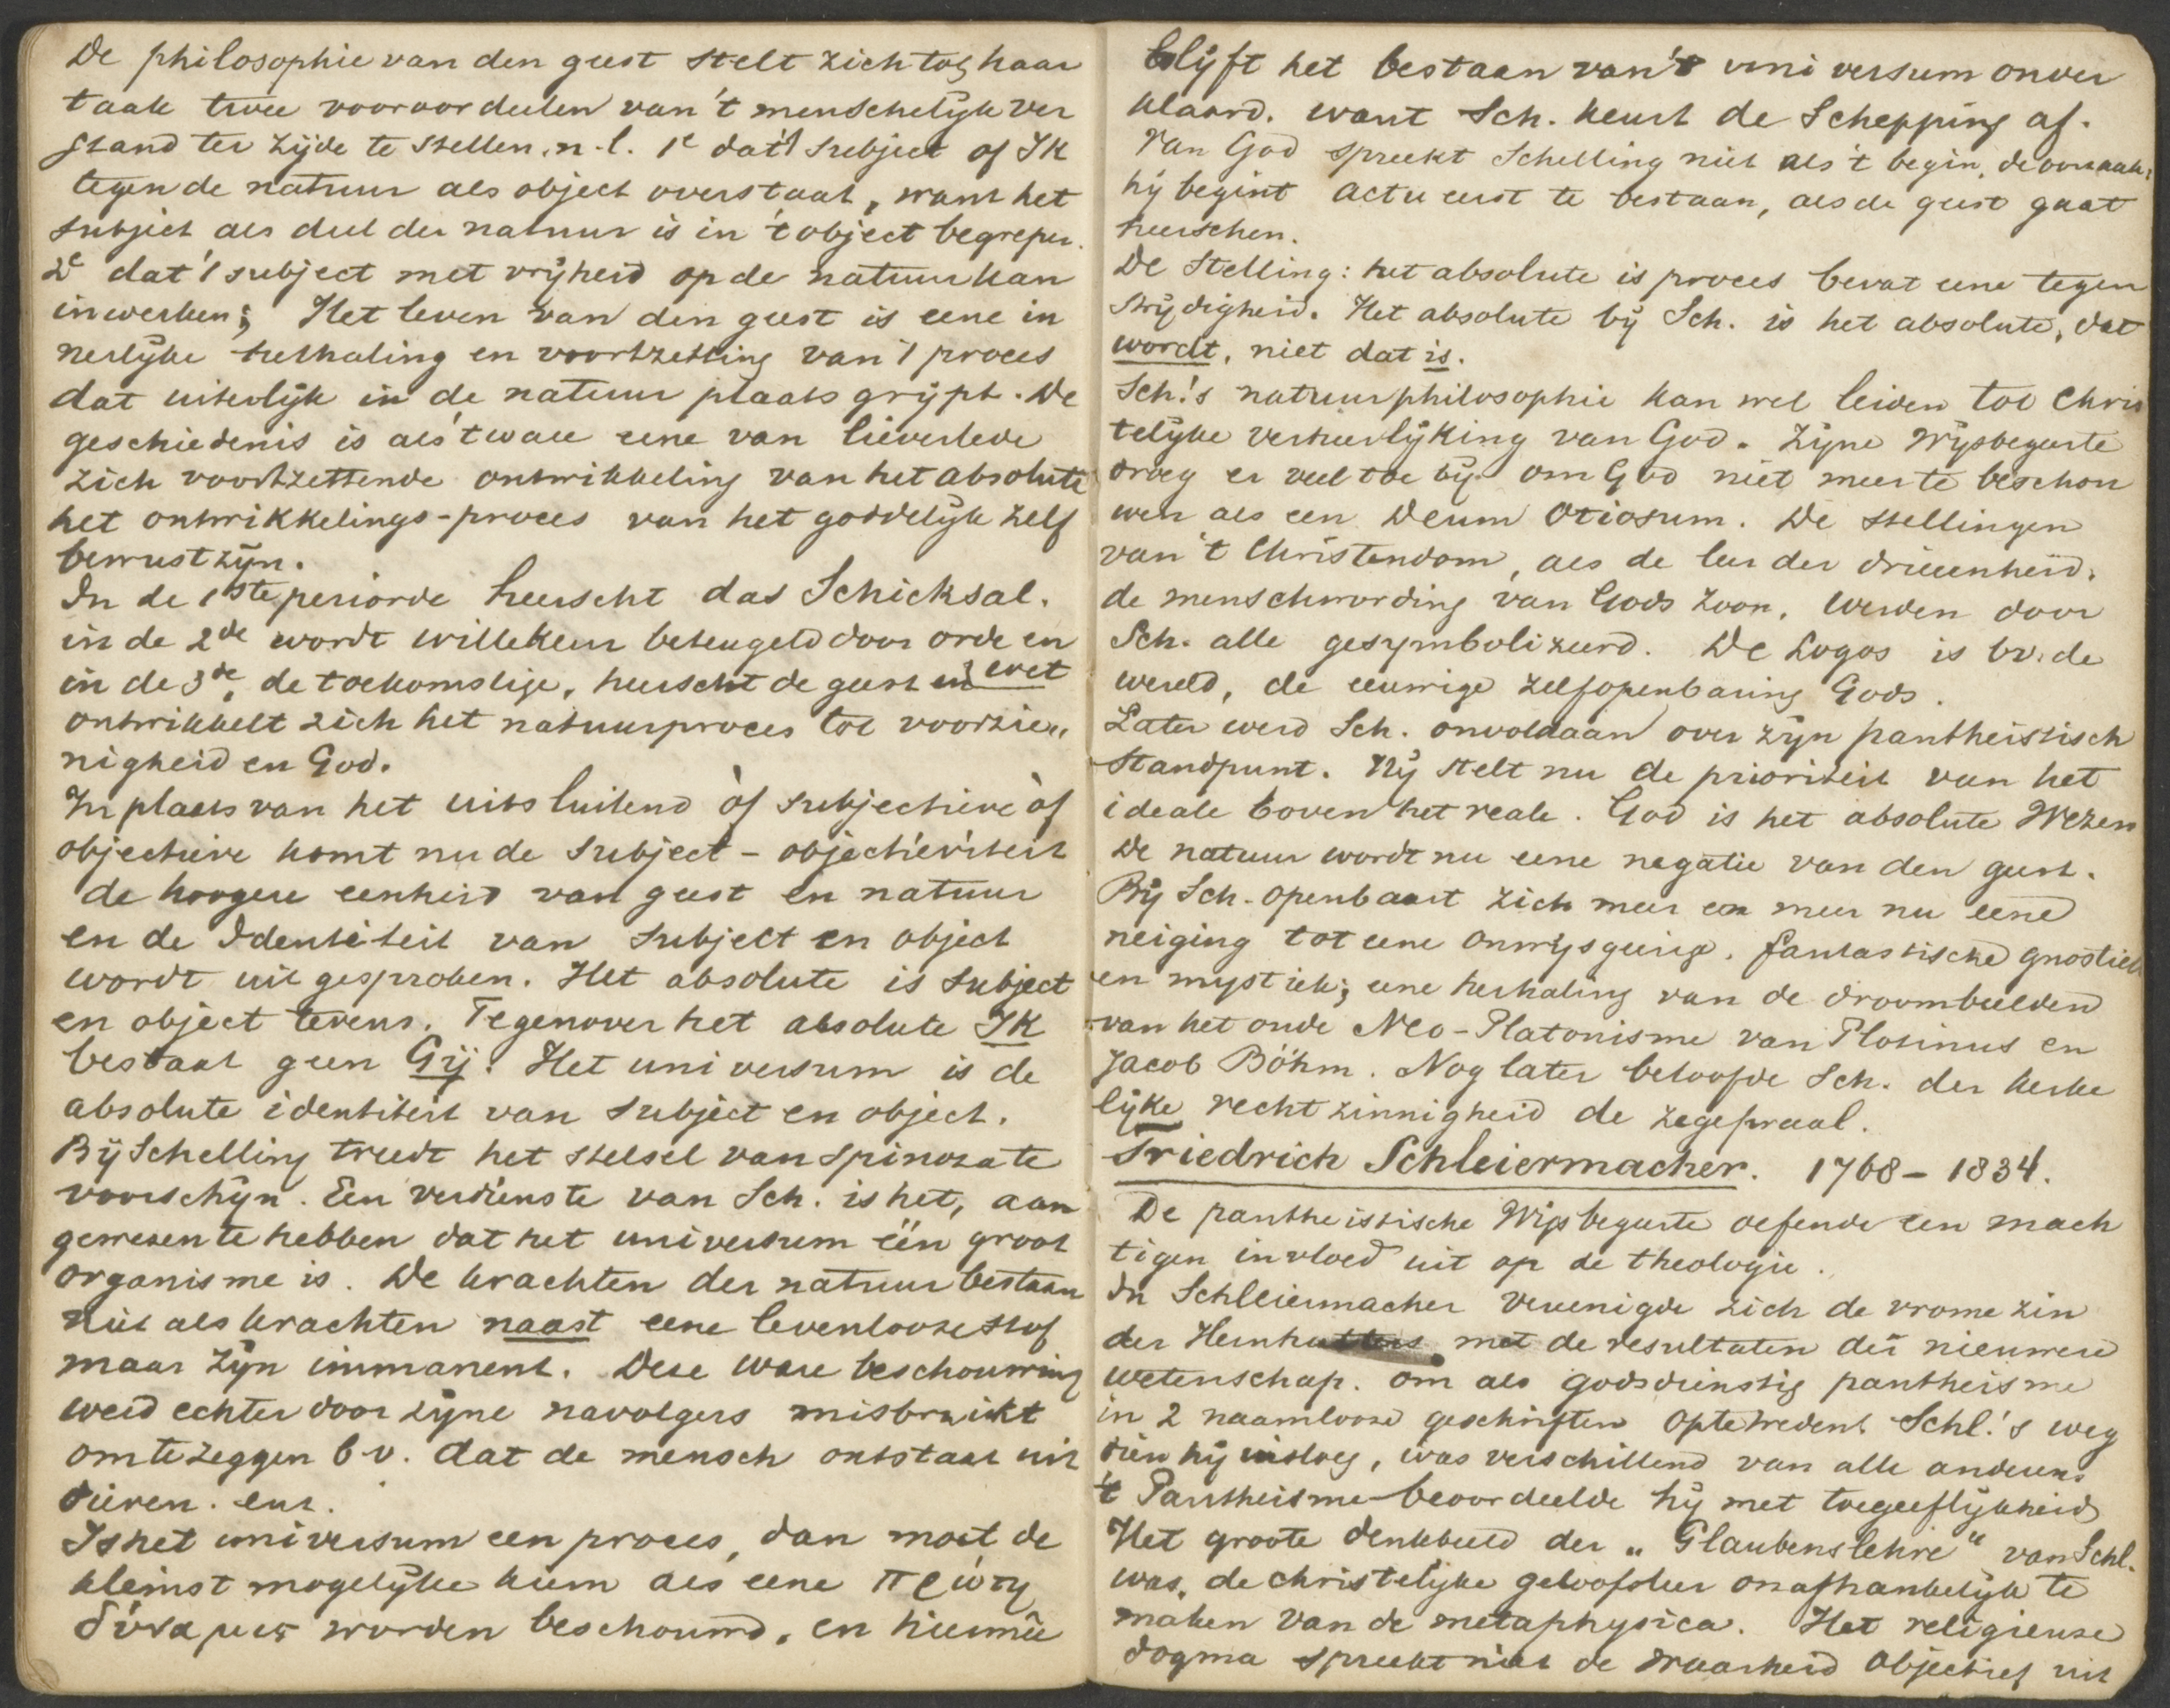 De philosophie van den geest stelt zich tot haar
taak twee vooroordeelen van 't menschelijk ver
stand ter zijde te stellen, n.l. 1e dat 't subject of IK
tegen de natuur als object overstaat, want het
subject als deel der natuur is in 't object begrepen.
2e dat 't subject met vrijheid op de natuur kan
inwerken; Het leven van den geest is eene in
nerlijke herhaling en voortzetting van 't proces
dat uiterlijk in de natuur plaats grijpt. De
geschiedenis is als 't ware eene van lieverlede
zich voortzettende ontwikkeling van het absolute
het ontwikkelings-proces van het goddelijk zelf
bewustzijn.
In de 1ste periode heerscht das Schicksal.
in de 2de wordt willekeur beteugeld door orde en
in de 3de, de toekomstige, heerscht de geest en wet
ontwikkelt zich het natuurproces tot voorzie„
nigheid en God.
In plaats van het uitsluitend òf subjectieve òf
objectieve komt nu de subject-objectiviteit
de hoogere eenheid van geest en natuur
en de Identiteit van subject en object
wordt uitgesproken. Het absolute is subject
en object tevens. Tegenover het absolute IK
bestaat geen Gij! Het universum is de
absolute identiteit van subject en object.
Bij Schelling treedt het stelsel van Spinoza te
voorschijn. Een verdienste van Sch. is het, aan
gewezen te hebben dat het universum één groot
organisme is. De krachten der natuur bestaan
niet als krachten naast eene levenlooze stof
maar zijn immanent. Deze ware beschouwing
werd echter door zijne navolgers misbruikt
om te zeggen b.v. dat de mensch ontstaat uit
dieren. enz.
Is het universum een proces, dan moet de
kleinst mogelijke kiem als eene πρώτη
δύναμις worden beschouwd, en hiermêe
blijft het bestaan van 't universum onver
klaard. want Sch. keurt de Schepping af.
Van God spreekt Schelling niet als 't begin, de oorzaak;
hij begint actu eerst te bestaan, als de geest gaat
heerschen.
De Stelling: het absolute is proces bevat eene tegen
strijdigheid. Het absolute bij Sch. is het absolute, dat
wordt, niet dat is.
Sch.'s natuurphilosophie kan wel leiden tot Chris
telijke verheerlijking van God. Zijne Wijsbegeerte
droeg er veel toe bij om God niet meer te beschou
wen als een Deum Otiosum. De stellingen
van 't Christendom, als de leer der drieëenheid,
de menschwording van Gods Zoon, werden door
Sch. alle gesymbolizeerd. De Logos is bv. de
wereld, de eeuwige zelfopenbaring Gods.
Later werd Sch. onvoldaan over zijn pantheistisch
standpunt. Hij stelt nu de prioriteit van het
ideale boven het reale. God is het absolute Wezen
De natuur wordt nu eene negatie van den geest.
Bij Sch. openbaart zich meer en meer nu eene
neiging tot eene onwijsgeerige, fantastische gnostiek
en mystiek; eene herhaling van de droombeelden
van het oude Neo-Platonisme van Plotinus en
Jacob Böhm. Nog later beloofde Sch. der kerke
lijke rechtzinnigheid de zegepraal.
Friedrich Schleiermacher. 1768-1834.
De pantheistische Wijsbegeerte oefende een mach
tigen invloed uit op de theologie.
In Schleiermacher vereenigde zich de vrome zin
der Hernhutters met de resultaten der nieuwere
wetenschap. om als godsdienstig pantheisme
in 2 naamlooze geschriften op te treden. Schl.'s weg
dien hij insloeg, was verschillend van alle anderen.
't Pantheisme beoordeelde hij met toegeeflijkheid
Het groote denkbeeld der „Glaubenslehre" van Schl.
was, de christelijke geloofsleer onafhankelijk te
maken van de metaphysica. Het religieuse
dogma spreekt niet de waarheid objectief uit